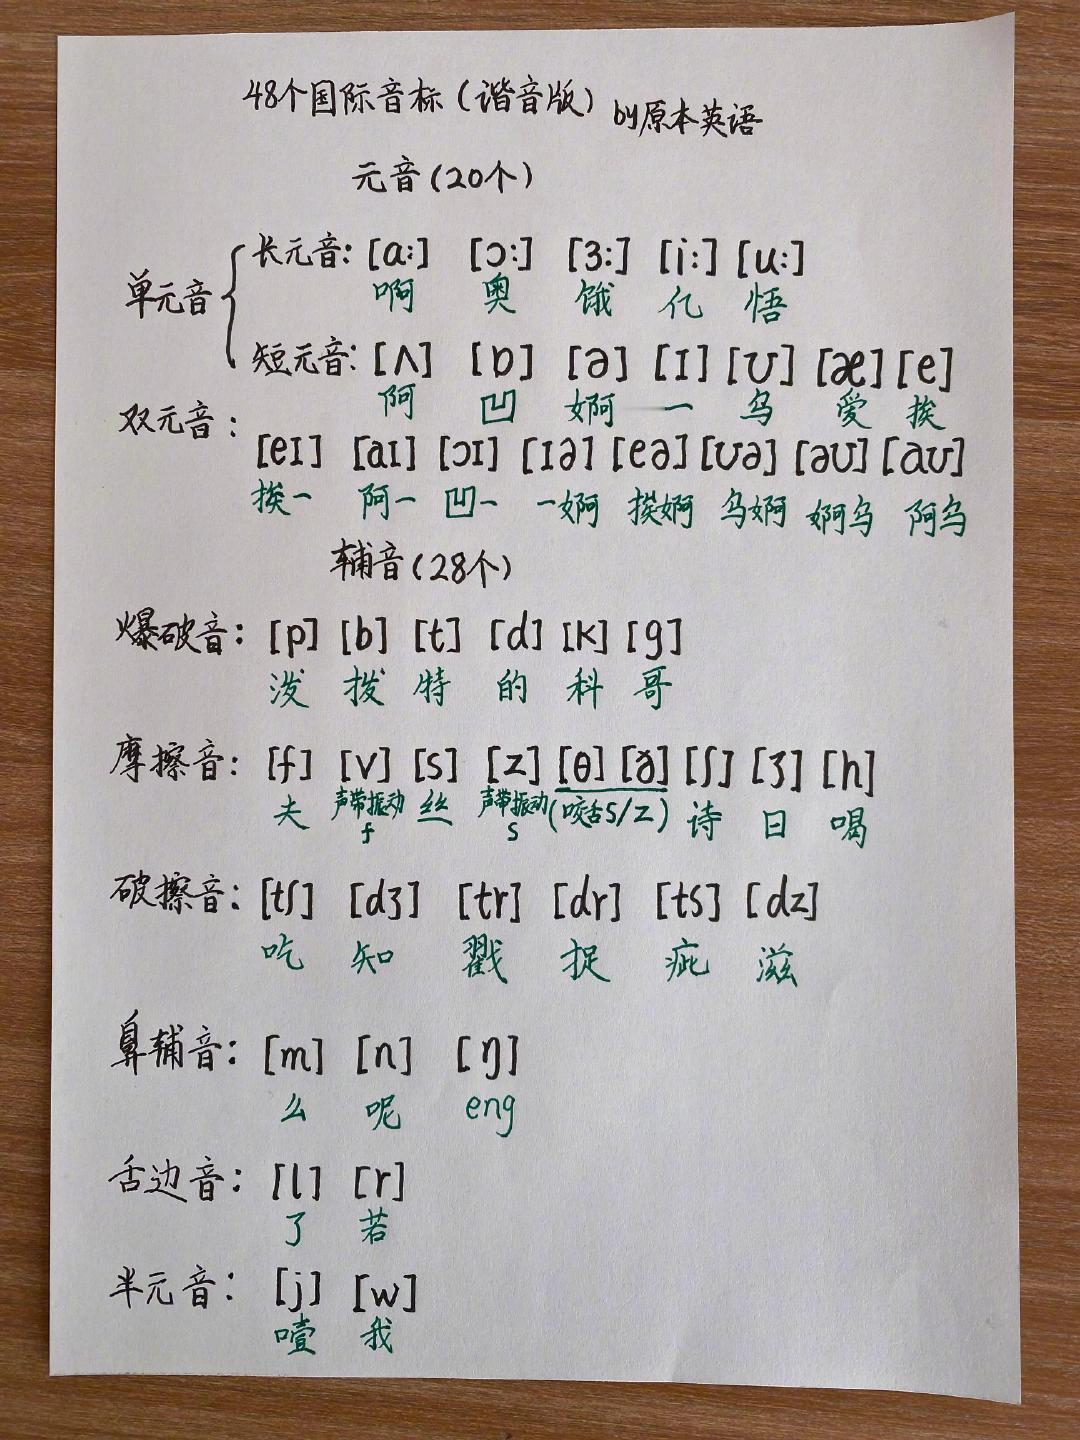 48个国际音标(谐音版) by原本英语
元音(20个)
单元音
长元音: [ɑ:] [ɔ:] [ɜ:] [i:] [u:]
啊 奥 饿 亿 悟
短元音: [ʌ] [ɒ] [ə] [ɪ] [ʊ] [æ] [e]
阿 凹 婀 一 乌 爱 挨
双元音:
[eɪ] [aɪ] [ɔɪ] [ɪə] [eə] [ʊə] [əʊ] [aʊ]
挨一 阿一 凹一 一婀 挨婀 乌婀 婀乌 阿乌
辅音(28个)
爆破音: [p] [b] [t] [d] [k] [g]
泼 拨 特 的 科 哥
摩擦音: [f] [v] [s] [z] [θ] [ð] [ʃ] [ʒ] [h]
夫 声带振动f 丝 声带振动s (咬舌s/z) 诗 日 喝
破擦音: [tʃ] [dʒ] [tr] [dr] [ts] [dz]
吃 知 戳 捉 疵 滋
鼻辅音: [m] [n] [ŋ]
么 呢 eng
舌边音: [l] [r]
了 若
半元音: [j] [w]
噎 我